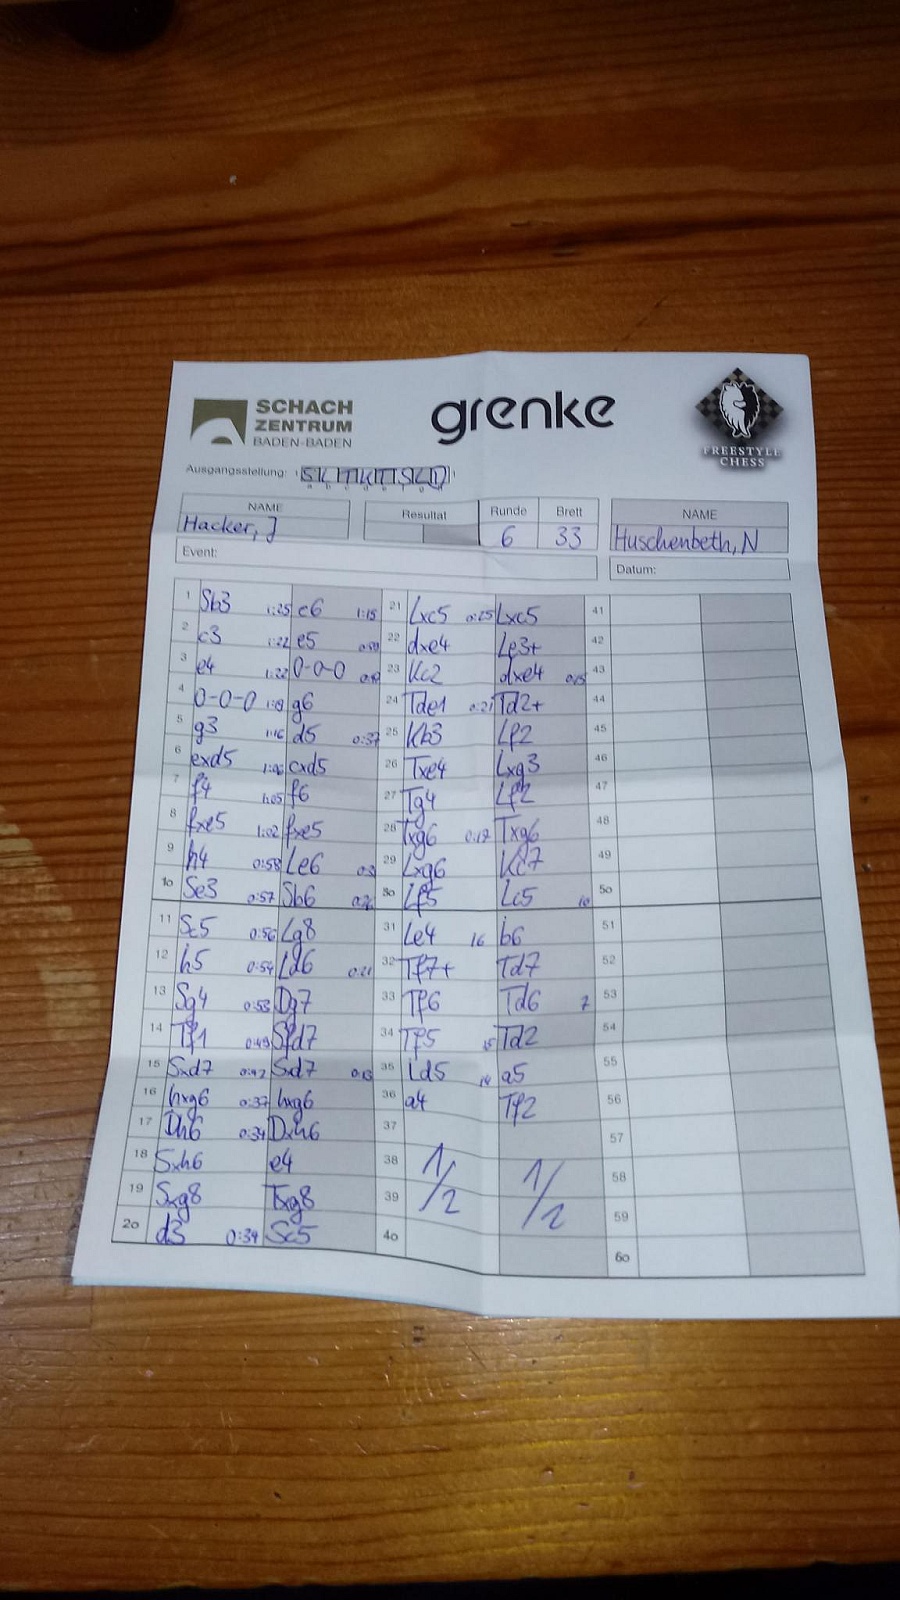 SCHACH
ZENTRUM
BADEN-BADEN
grenke
FREESTYLE
CHESS
Ausgangsstellung:
a b c d e f g h
NAME Resultat Runde Brett NAME
Hacker, J 6 33 Huschenbeth, N
Event: Datum:
1 Sb3 1:25 c6 1:15 21 Lxc5 0:25 Lxc5 41
2 c3 1:22 e5 22 dxe4 Le3+ 42
3 e4 1:22 0-0-0 23 Kc2 dxe4 43
4 0-0-0 g6 24 Tde1 0:21 Td2+ 44
5 g3 1:16 d5 0:37 25 Kb3 Lf2 45
6 exd5 cxd5 26 Txe4 Lxg3 46
7 f4 1:05 f6 27 Tg4 Lf2 47
8 fxe5 1:02 fxe5 28 Txg6 Txg6 48
9 h4 0:58 Le6 29 Lxg6 Kc7 49
10 Se3 0:57 Sb6 30 Lf5 Lc5 10 50
11 Sc5 0:56 Lg8 31 Le4 16 b6 51
12 h5 0:54 Ld6 0:21 32 Tf7+ Td7 52
13 Sg4 0:53 Dg7 33 Tf6 Td6 7 53
14 Tf1 0:49 Sfd7 34 Tf5 15 Td2 54
15 Sxd7 0:42 Sxd7 35 Ld5 14 a5 55
16 hxg6 0:37 hxg6 36 a4 Tf2 56
17 Dh6 0:34 Dxh6 37 57
18 Sxh6 e4 38 1/2 1/2 58
19 Sxg8 Txg8 39 59
20 d3 0:34 Sc5 40 60